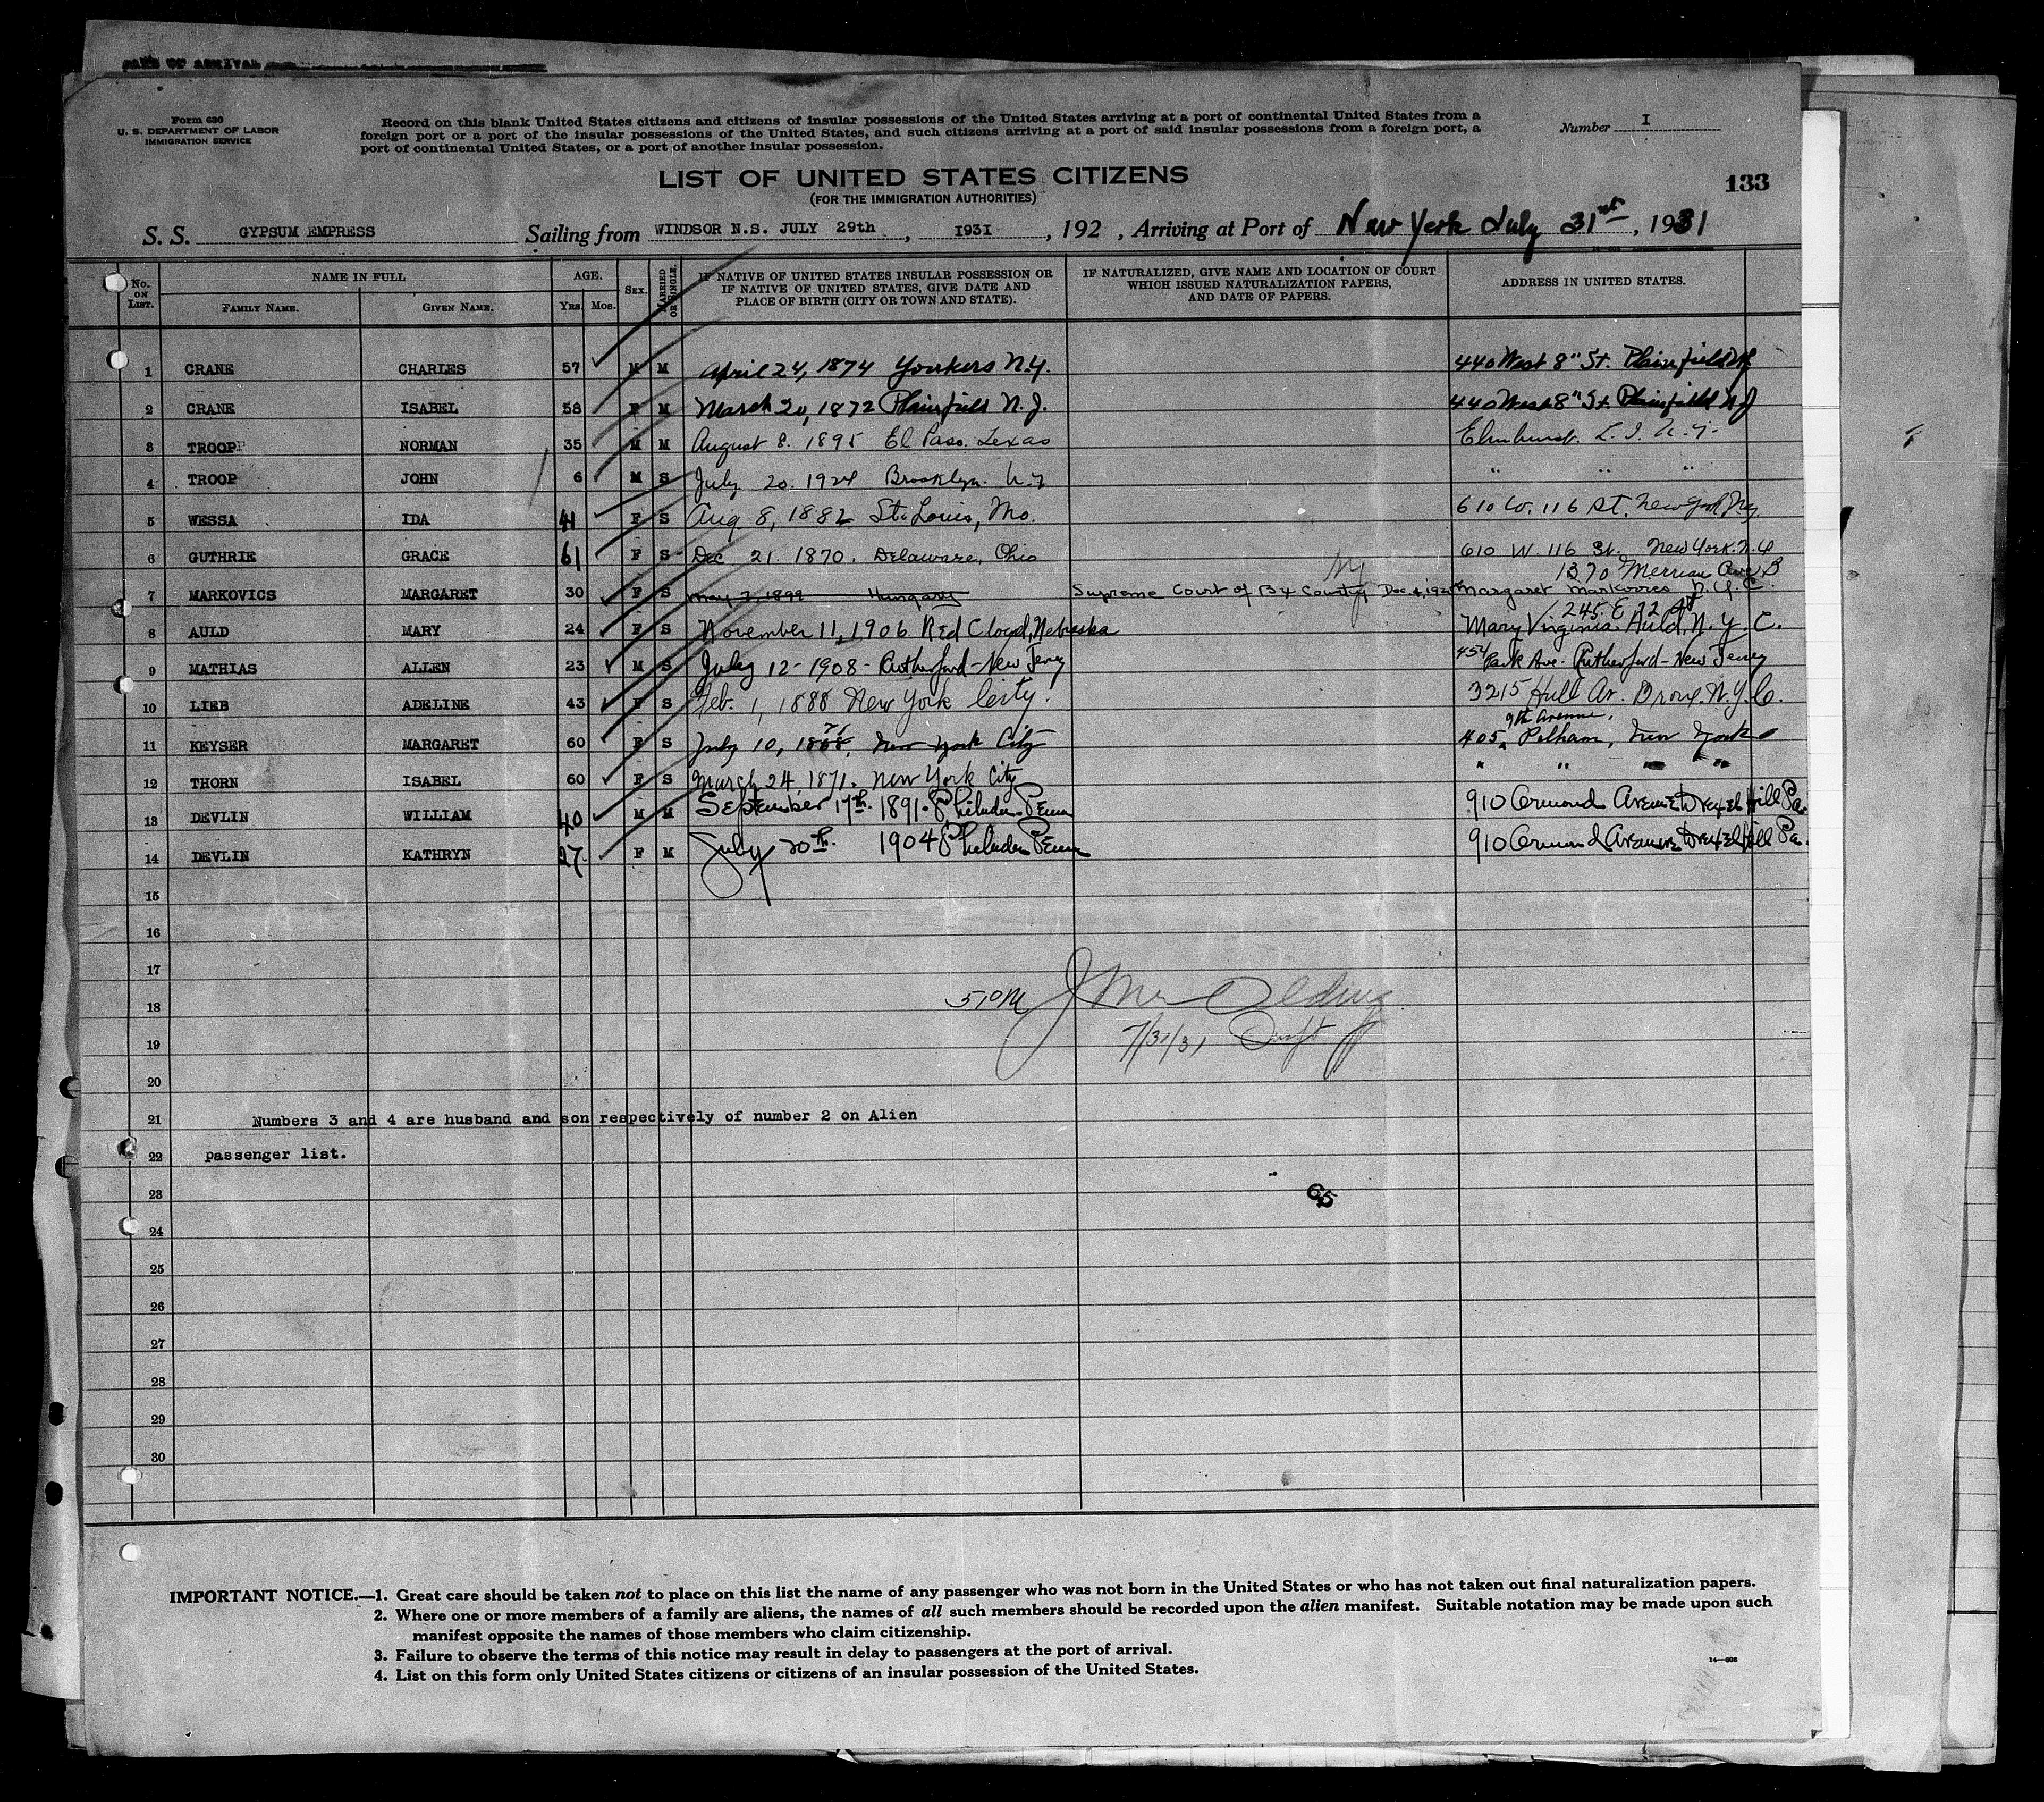 PORT OF ARRIVAL
Form 630
U. S. DEPARTMENT OF LABOR
IMMIGRATION SERVICE
Record on this blank United States citizens and citizens of insular possessions of the United States arriving at a port of continental United States from a
foreign port or a port of the insular possessions of the United States, and such citizens arriving at a port of said insular possessions from a foreign port, a
port of continental United States, or a port of another insular possession.
Number I
LIST OF UNITED STATES CITIZENS
(FOR THE IMMIGRATION AUTHORITIES)
133
S. S. GYPSUM EMPRESS Sailing from WINDSOR N.S. JULY 29th, 1931, 192 , Arriving at Port of New York July 31st, 1931
No. ON LIST. NAME IN FULL AGE. SEX. MARRIED OR SINGLE. IF NATIVE OF UNITED STATES INSULAR POSSESSION OR IF NATIVE OF UNITED STATES, GIVE DATE AND PLACE OF BIRTH (CITY OR TOWN AND STATE). IF NATURALIZED, GIVE NAME AND LOCATION OF COURT WHICH ISSUED NATURALIZATION PAPERS, AND DATE OF PAPERS. ADDRESS IN UNITED STATES.
FAMILY NAME. GIVEN NAME. YRS. MOS.
1 CRANE CHARLES 57 M M April 24, 1874 Yonkers N.Y. 440 West 8" St. Plainfield NJ
2 CRANE ISABEL 58 F M March 20, 1872 Plainfield N.J. 440 West 8" St. Plainfield NJ
3 TROOP NORMAN 35 M M August 8. 1895 El Paso. Texas Elmhurst. L. I. N.Y.
4 TROOP JOHN 6 M S July 20. 1924 Brooklyn. N.Y " " "
5 WESSA IDA 41 F S Aug. 8, 1882 St. Louis, Mo. 610 W. 116 St. New York N.Y.
6 GUTHRIE GRACE 61 F S Dec 21. 1870. Delaware, Ohio 610 W. 116 St. New York. N.Y
1370 Merriam Ave B
7 MARKOVICS MARGARET 30 F S May 7, 1899 Hungary Supreme Court of Bx County NY Dec. Margaret Markovics N.Y.C.
245 E 22 St
8 AULD MARY 24 F S November 11, 1906 Red Cloud, Nebraska Mary Virginia Auld, N.Y.C.
9 MATHIAS ALLEN 23 M S July 12 - 1908 - Rutherford - New Jersey 454 Park Ave. Rutherford - New Jersey
10 LIEB ADELINE 43 F S Feb. 1, 1888 New York City. 3215 Hull Av. Bronx. N.Y.C.
9th Avenue,
11 KEYSER MARGARET 60 F S July 10, 1868, 71 New York City 405 Pelham, New York
12 THORN ISABEL 60 F S March 24, 1871. New York City " " " "
13 DEVLIN WILLIAM 40 M M September 17th. 1891. Philada. Penna 910 Ormond Avenue Drexel Hill Pa.
14 DEVLIN KATHRYN 27. F M July 20th. 1904 Philada Penna 910 Ormond Avenue Drexel Hill Pa.
15
16
17
18 5 PM
19 7/31/31
20
21 Numbers 3 and 4 are husband and son respectively of number 2 on Alien
22 passenger list.
23
65
24
25
26
27
28
29
30
IMPORTANT NOTICE.—1. Great care should be taken not to place on this list the name of any passenger who was not born in the United States or who has not taken out final naturalization papers.
2. Where one or more members of a family are aliens, the names of all such members should be recorded upon the alien manifest. Suitable notation may be made upon such
manifest opposite the names of those members who claim citizenship.
3. Failure to observe the terms of this notice may result in delay to passengers at the port of arrival.
4. List on this form only United States citizens or citizens of an insular possession of the United States.